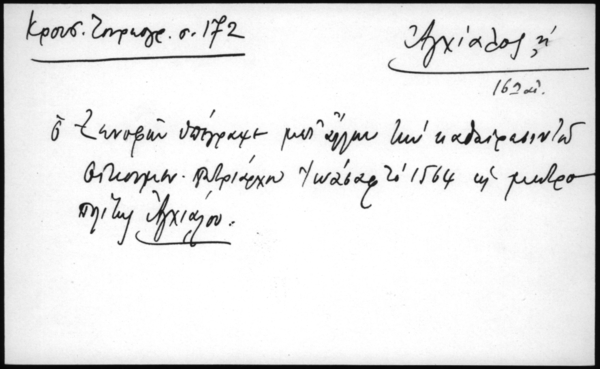 Κρουσ. Τουρκογρ. σ. 172
Ἀγχίαλος, ἡ
16ος αἰ.
ὁ Ξενοφῶν ὑπέγραψε μετ' ἄλλων τὴν καθαίρεσιν τοῦ
Οἰκουμεν. Πατριάρχου Ἰωάσαφ τὸ 1564 ὡς μητρο
πολίτης Ἀγχιάλου.